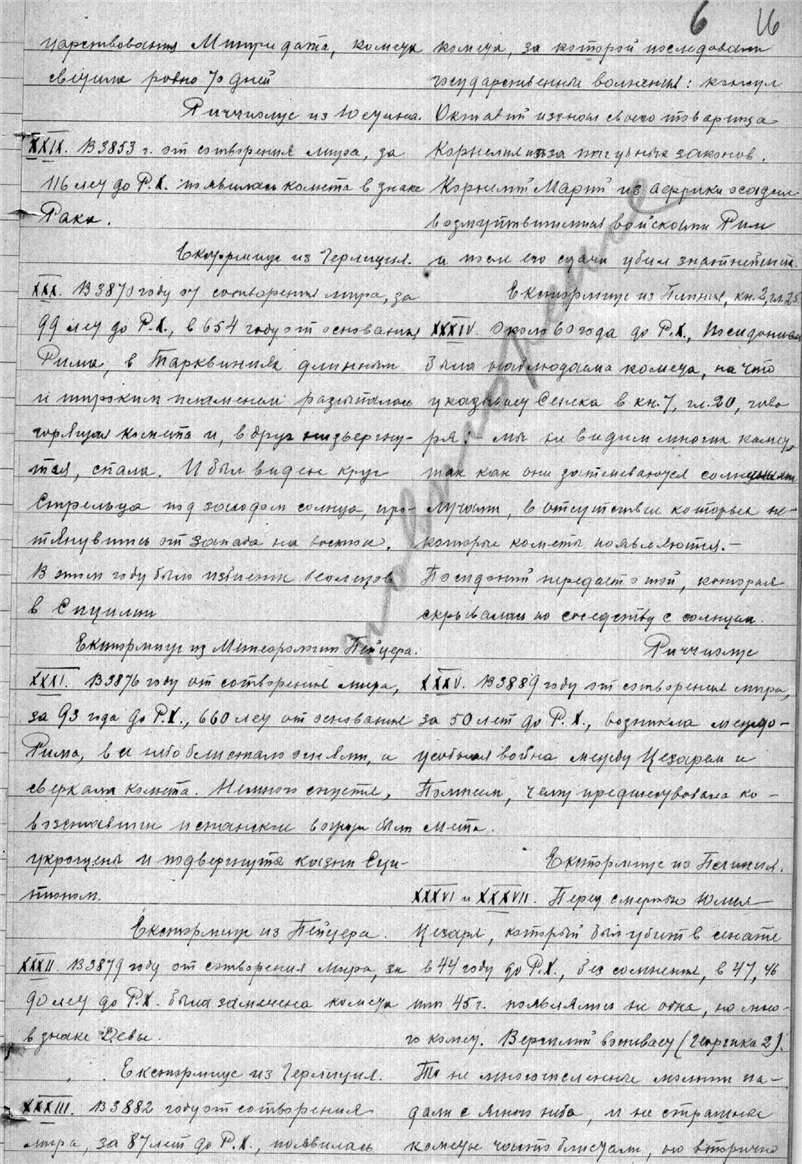 6 16
царствования Митридата, комета
светила ровно 70 дней
Риччиолус из Юстина.
XXIX. В 3853 г. от сотворения мира, за
116 лет до Р.Х. появилась комета в знаке
Рака.
Екстормиус из Герлиция.
XXX. В 3870 году от сотворения мира, за
99 лет до Р.Х., в 654 году от основания
Рима, в Тарквиниях длинным
и широким пламенем рассыпалась
горящая комета и, вдруг низвергну-
тая, спала. И был виден круг
Стрельца под заходом солнца, про-
тянувшись от запада на восток.
В этом году было избиение
в Сицилии
Екстормиус из Метеорологии Пейцера.
XXXI. В 3876 году от сотворения мира,
за 93 года до Р.Х., 660 лет от основания
Рима, все небо блистало огнями, и
сверкала комета. Немного спустя,
восставшие испанские были
укрощены и подвергнуты казни Сци-
пионом.
Екстормиус из Пейцера.
XXXII. В 3879 году от сотворения мира, за
90 лет до Р.Х. была замечена комета
в знаке Девы.
Екстормиус из Герлиция.
XXXIII. В 3882 году от сотворения
мира, за 87 лет до Р.Х., появилась
комета, за которой последовали
государственные волнения: консул
Октавий изгнал своего товарища
Корнелия из-за пагубных законов.
Корнелий Марий из Африки осадил
возмутившимися войсками Рим
и после его сдачи убил знатнейших.
Екстормиус из Плиния, кн. 2, гл. 25.
XXXIV. Около 60 года до Р.Х., Посидонием
была наблюдаема комета, на что
указывает Сенека в кн. 7, гл. 20, гово
ря: мы не видим многих комет,
так как они затемеваются солнечными
лучами, в отсутствие которых не-
которые кометы появляются.–
Посидоний передает о той, которая
скрывалась по соседству с солнцем.
Риччиолус
XXXV. В 3889 году от сотворения мира,
за 50 лет до Р.Х., возникла междо-
усобная война между Цезарем и
Помпеем, чему предшествовала ко-
мета.
Екстормиус из Плиния.
XXXVI и XXXVII. Перед смертью Юлия
Цезаря, который был убит в сенате
в 44 году до Р.Х., без сомнения, в 47, 46
или 45 г. появлялись не одна, но мно-
го комет. Вергилий воспивает (Георгика 2).
То не многочисленные молнии па-
дали с ясного неба, и не страшные
кометы часто блистали, но вторично